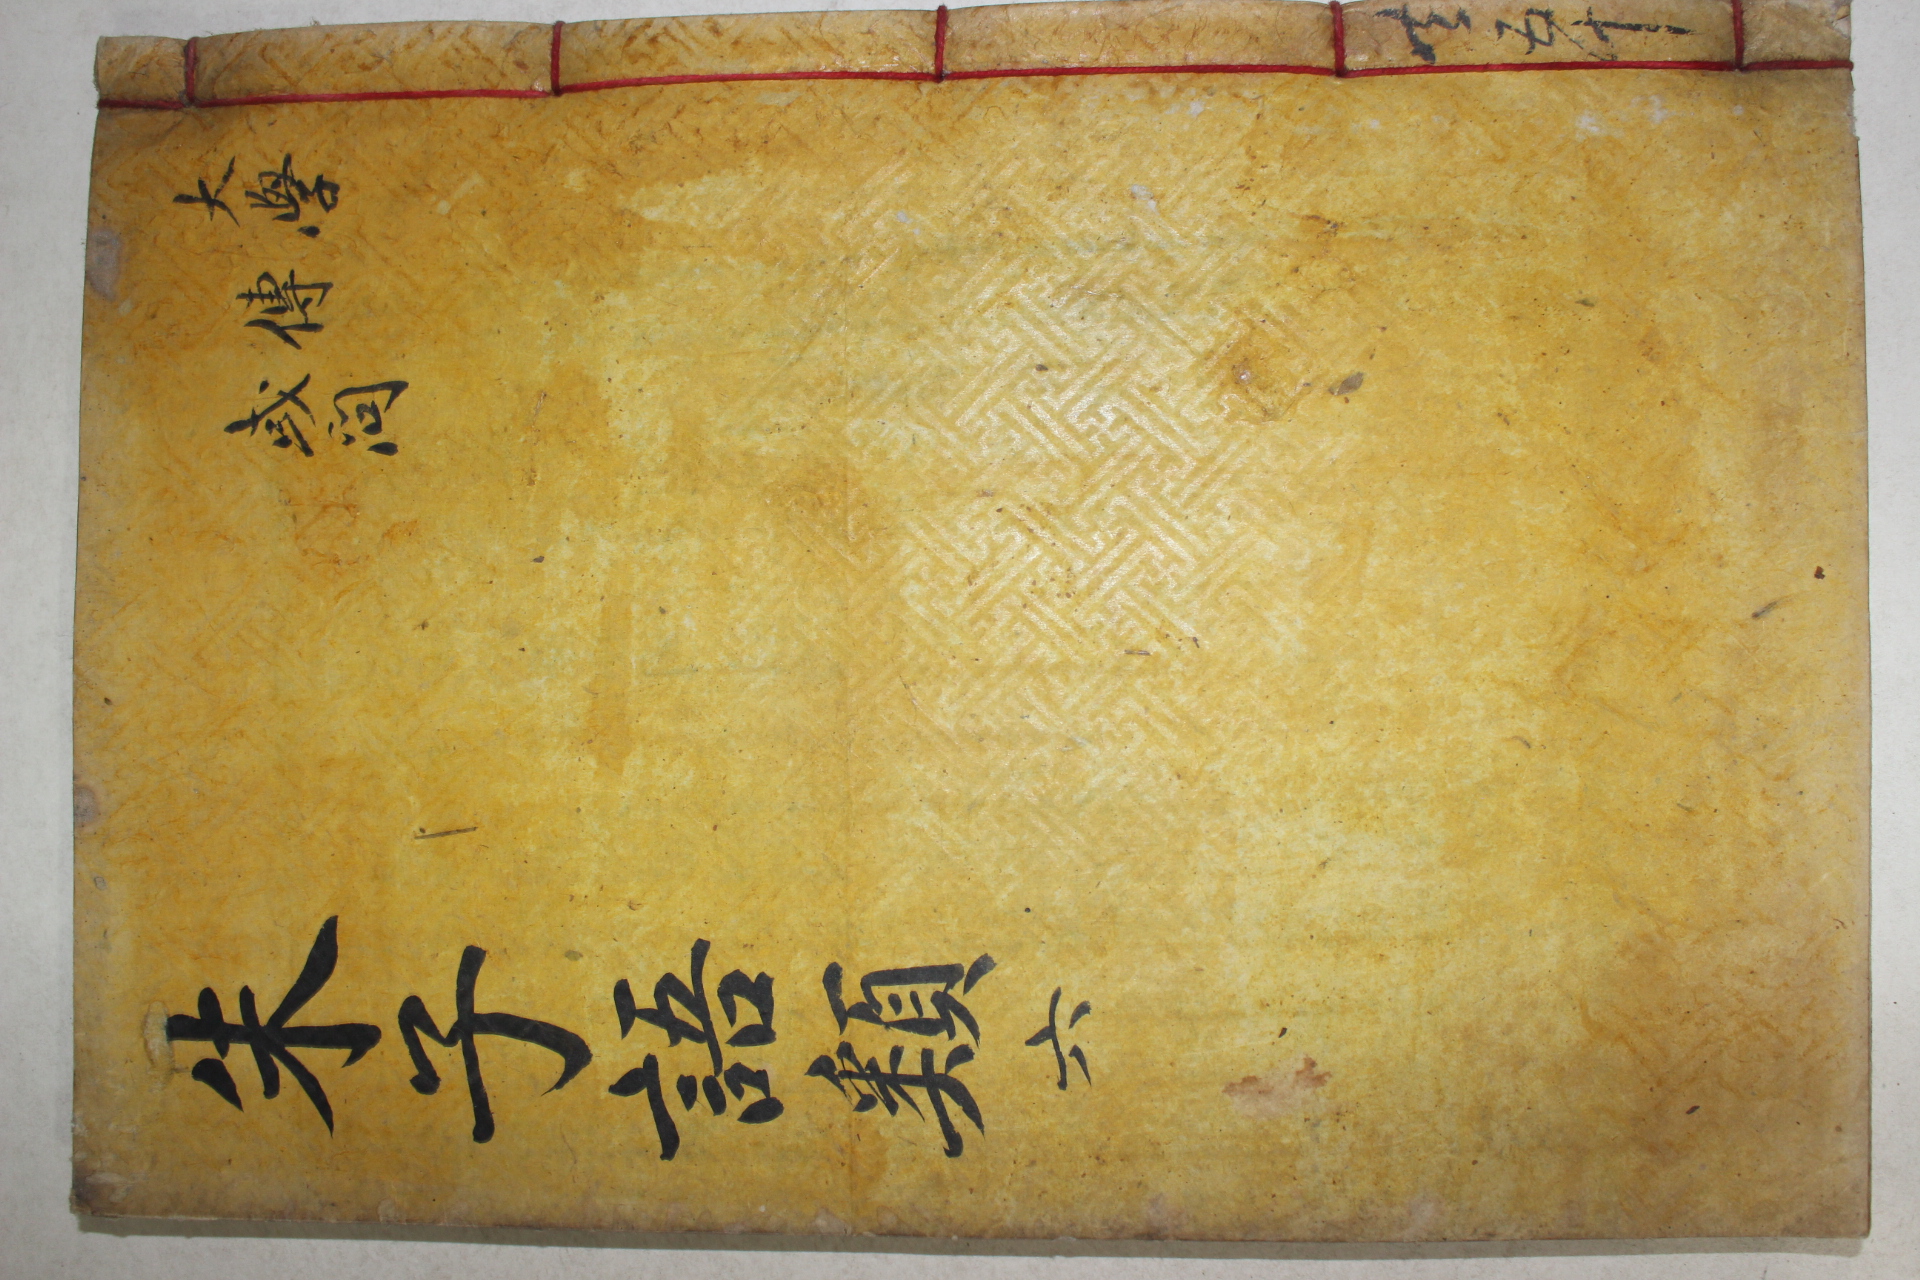 朱子語類 六
大學
傳
或問
共五十